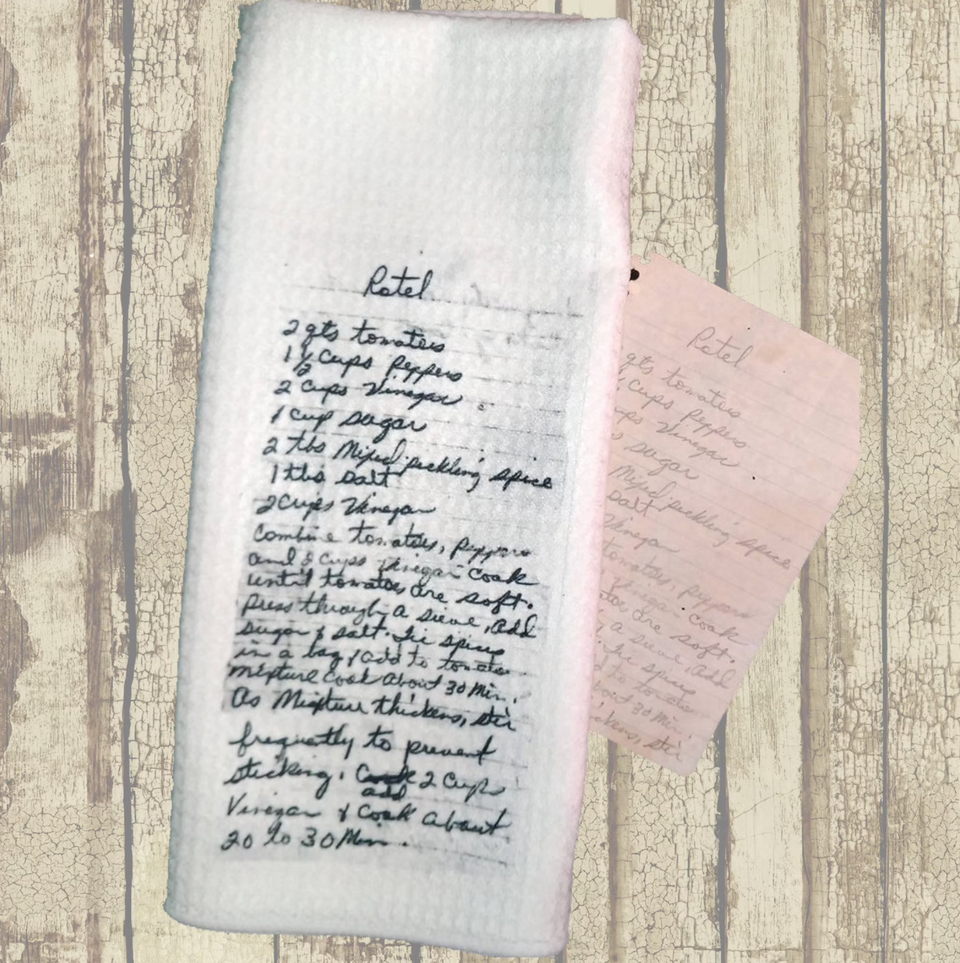 Ratel
2 qts tomatoes
1 1/2 Cups Peppers
2 Cups Vinegar
1 Cup sugar
2 tbs Mixed pickling spice
1 tbs salt
2 Cups Vinegar
Combine tomatoes, peppers
and 2 Cups Vinegar cook
until tomatoes are soft.
Press through A sieve, Add
sugar & salt. Tie spices
in a bag, add to tomato
mixture Cook About 30 Min.
As Mixture thickens, stir
frequently to prevent
sticking. add 2 Cups
Vinegar & Cook about
20 to 30 Min.
Ratel
qts tomatoes
Cups Peppers
Vinegar
sugar
Mixed pickling spice
salt
Vinegar
tomatoes, peppers
Vinegar cook
are soft.
a sieve, Add
Tie spices
to tomato
about 30 Min.
stir